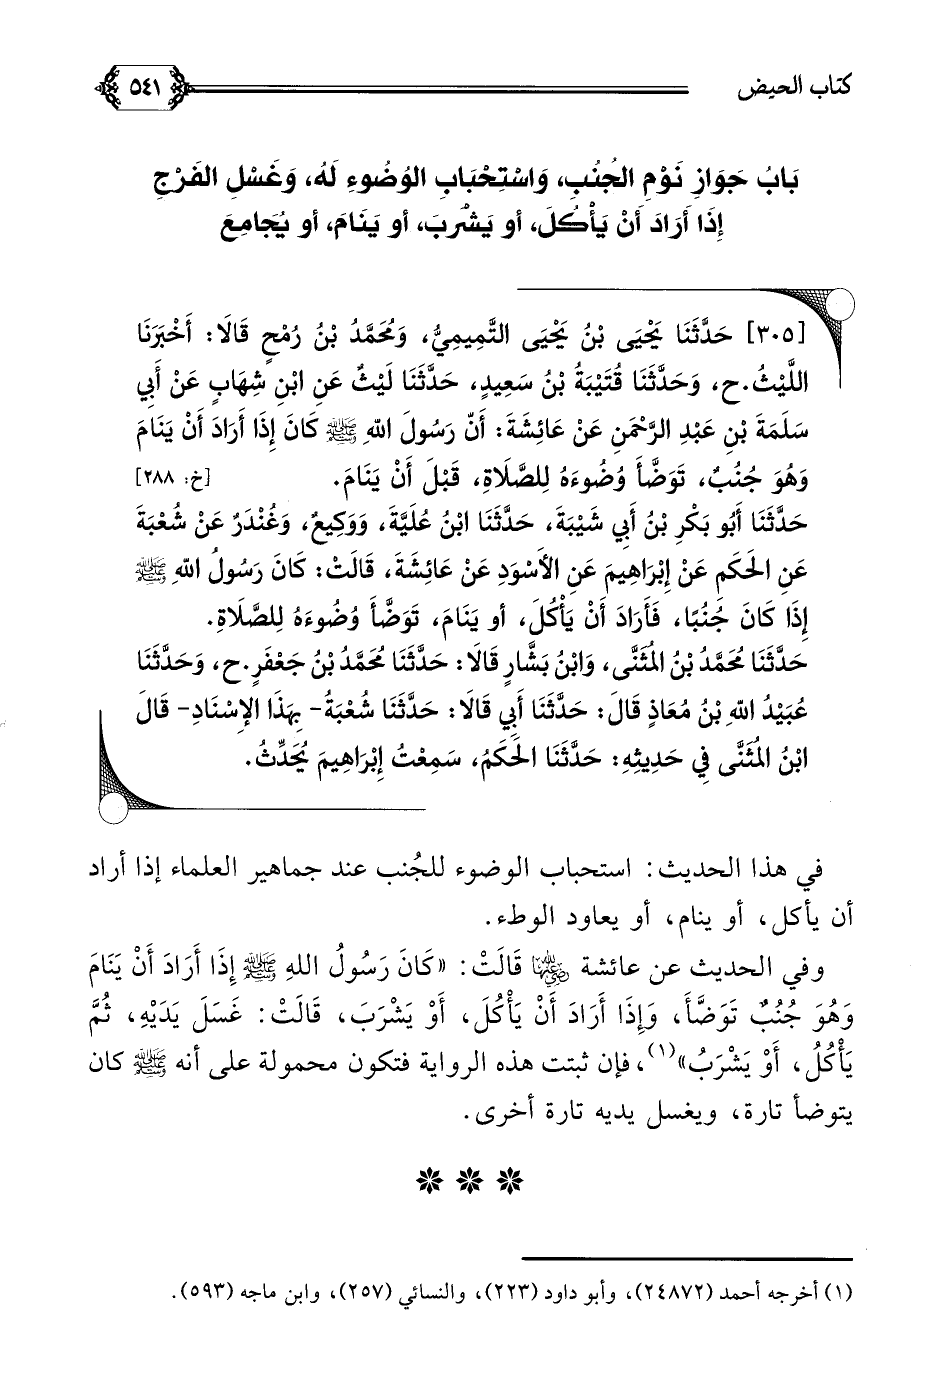 كتاب الحيض
٥٤١
بَابُ جَوَازِ نَوْمِ الجُنُبِ، وَاسْتِحْبَابِ الوُضُوءِ لَهُ، وَغَسْلِ الفَرْجِ
إِذَا أَرَادَ أَنْ يَأْكُلَ، أو يَشْرَبَ، أو يَنَامَ، أو يُجَامِعَ
[٣٠٥] حَدَّثَنَا يَحْيَى بْنُ يَحْيَى التَّمِيمِيُّ، وَمُحَمَّدُ بْنُ رُمْحٍ قَالَا: أَخْبَرَنَا
اللَّيْثُ.ح، وَحَدَّثَنَا قُتَيْبَةُ بْنُ سَعِيدٍ، حَدَّثَنَا لَيْثٌ عَنِ ابْنِ شِهَابٍ عَنْ أَبِي
سَلَمَةَ بْنِ عَبْدِ الرَّحْمَنِ عَنْ عَائِشَةَ: أَنّ رَسُولَ اللهِ ﷺ كَانَ إِذَا أَرَادَ أَنْ يَنَامَ
وَهُوَ جُنُبٌ، تَوَضَّأَ وُضُوءَهُ لِلصَّلَاةِ، قَبْلَ أَنْ يَنَامَ. [خ: ٢٨٨]
حَدَّثَنَا أَبُو بَكْرِ بْنُ أَبِي شَيْبَةَ، حَدَّثَنَا ابْنُ عُلَيَّةَ، وَوَكِيعٌ، وَغُنْدَرٌ عَنْ شُعْبَةَ
عَنِ الحَكَمِ عَنْ إِبْرَاهِيمَ عَنِ الأَسْوَدِ عَنْ عَائِشَةَ، قَالَتْ: كَانَ رَسُولُ اللهِ ﷺ
إِذَا كَانَ جُنُبًا، فَأَرَادَ أَنْ يَأْكُلَ، أو يَنَامَ، تَوَضَّأَ وُضُوءَهُ لِلصَّلَاةِ.
حَدَّثَنَا مُحَمَّدُ بْنُ المُثَنَّى، وَابْنُ بَشَّارٍ قَالَا: حَدَّثَنَا مُحَمَّدُ بْنُ جَعْفَرٍ.ح، وَحَدَّثَنَا
عُبَيْدُ اللهِ بْنُ مُعَاذٍ قَالَ: حَدَّثَنَا أَبِي قَالَا: حَدَّثَنَا شُعْبَةُ- بِهَذَا الإِسْنَادِ- قَالَ
ابْنُ المُثَنَّى فِي حَدِيثِهِ: حَدَّثَنَا الحَكَمُ، سَمِعْتُ إِبْرَاهِيمَ يُحَدِّثُ.
في هذا الحديث: استحباب الوضوء للجُنب عند جماهير العلماء إذا أراد
أن يأكل، أو ينام، أو يعاود الوطء.
وفي الحديث عن عائشة رضي الله عنها قَالَتْ: «كَانَ رَسُولُ اللهِ ﷺ إِذَا أَرَادَ أَنْ يَنَامَ
وَهُوَ جُنُبٌ تَوَضَّأَ، وَإِذَا أَرَادَ أَنْ يَأْكُلَ، أَوْ يَشْرَبَ، قَالَتْ: غَسَلَ يَدَيْهِ، ثُمَّ
يَأْكُلُ، أَوْ يَشْرَبُ»(١)، فإن ثبتت هذه الرواية فتكون محمولة على أنه ﷺ كان
يتوضأ تارة، ويغسل يديه تارة أخرى.
(١) أخرجه أحمد (٢٤٨٧٢)، وأبو داود (٢٢٣)، والنسائي (٢٥٧)، وابن ماجه (٥٩٣).